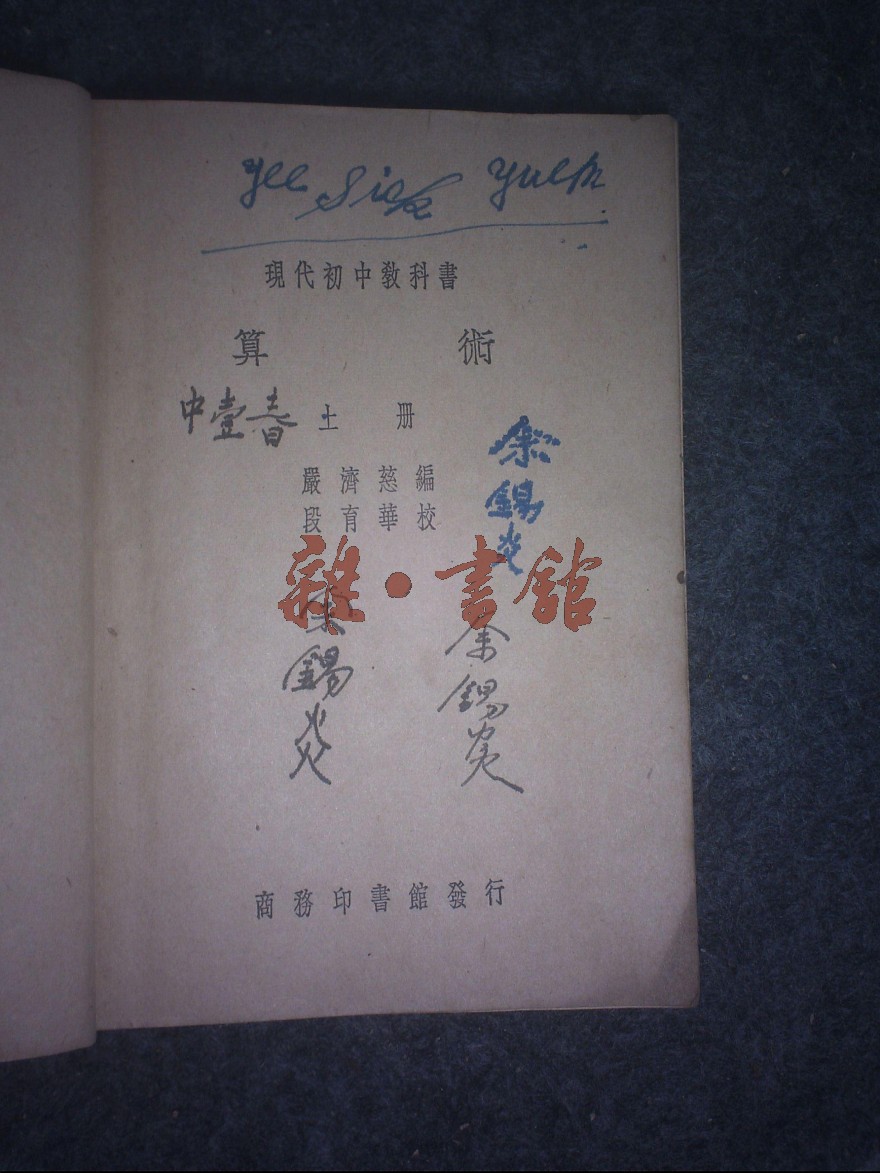 Yee Sick Yuen
現代初中教科書
算術
中壹春 上册
嚴濟慈編
段育華校
余錫炎
雜·書館
余錫炎
余錫炎
商務印書館發行